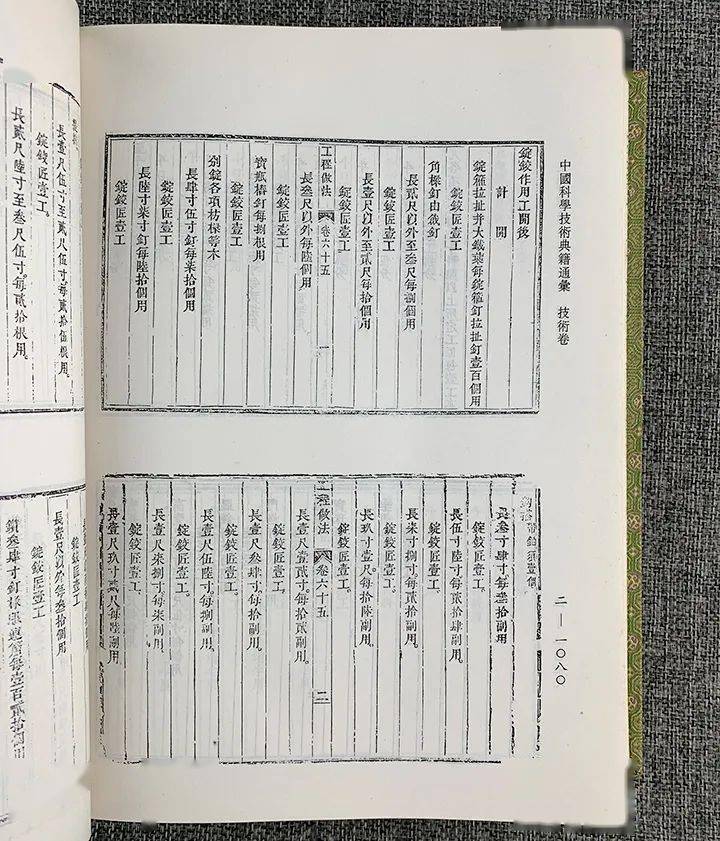 中國科學技術典籍通彙 技術卷
二—一〇八〇
錠鉸作用工開後
計開
錠箍拉扯并大鐵葉每錠箍釘拉扯釘壹百個用
錠鉸匠壹工
角樑釘由戧釘
長貳尺以外至叁尺每捌個用
錠鉸匠壹工
長壹尺以外至貳尺每拾個用
錠鉸匠壹工
工程做法 卷六十五 一
長叁尺以外每陸個用
錠鉸匠壹工
寶瓶樁釘每捌根用
錠鉸匠壹工
錠各項枋樑等木
長肆寸伍寸釘每柒拾個用
錠鉸匠壹工
長陸寸柒寸釘每陸拾個用
錠鉸匠壹工
長叁寸肆寸每叁拾副用
錠鉸匠壹工。
長伍寸陸寸每貳拾肆副用
錠鉸匠壹工。
長柒寸捌寸每貳拾副用。
錠鉸匠壹工。
長玖寸壹尺。每拾陸副用。
錠鉸匠壹工。
工程做法 卷六十五 二
長壹尺壹貳寸。每拾貳副用。
錠鉸匠壹工。
長壹尺叁肆寸。每拾副用。
錠鉸匠壹工。
長壹尺伍陸寸。每捌副用。
錠鉸匠壹工。
長壹尺柒捌寸。每柒副用。
錠鉸匠壹工。
長壹尺玖寸貳尺每陸副用
長壹尺伍寸至貳尺伍寸。每貳拾伍根用。
錠鉸匠壹工。
長貳尺陸寸至叁尺伍寸。每貳拾根用。
錠鉸匠壹工。
長壹尺以外每叁拾個用。
錠鉸匠壹工。